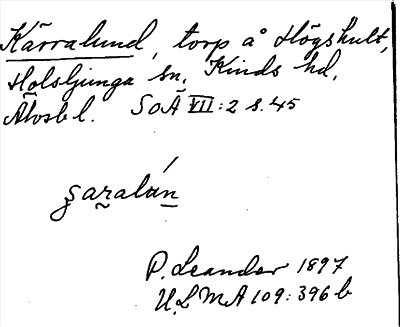 Kärralund, torp å Högshult,
Holsljunga sn, Kinds hd,
Älvsb l. SOÄ VII:2 s. 45
ʂaralán
P. Leander 1897
ULMA 109:396 b